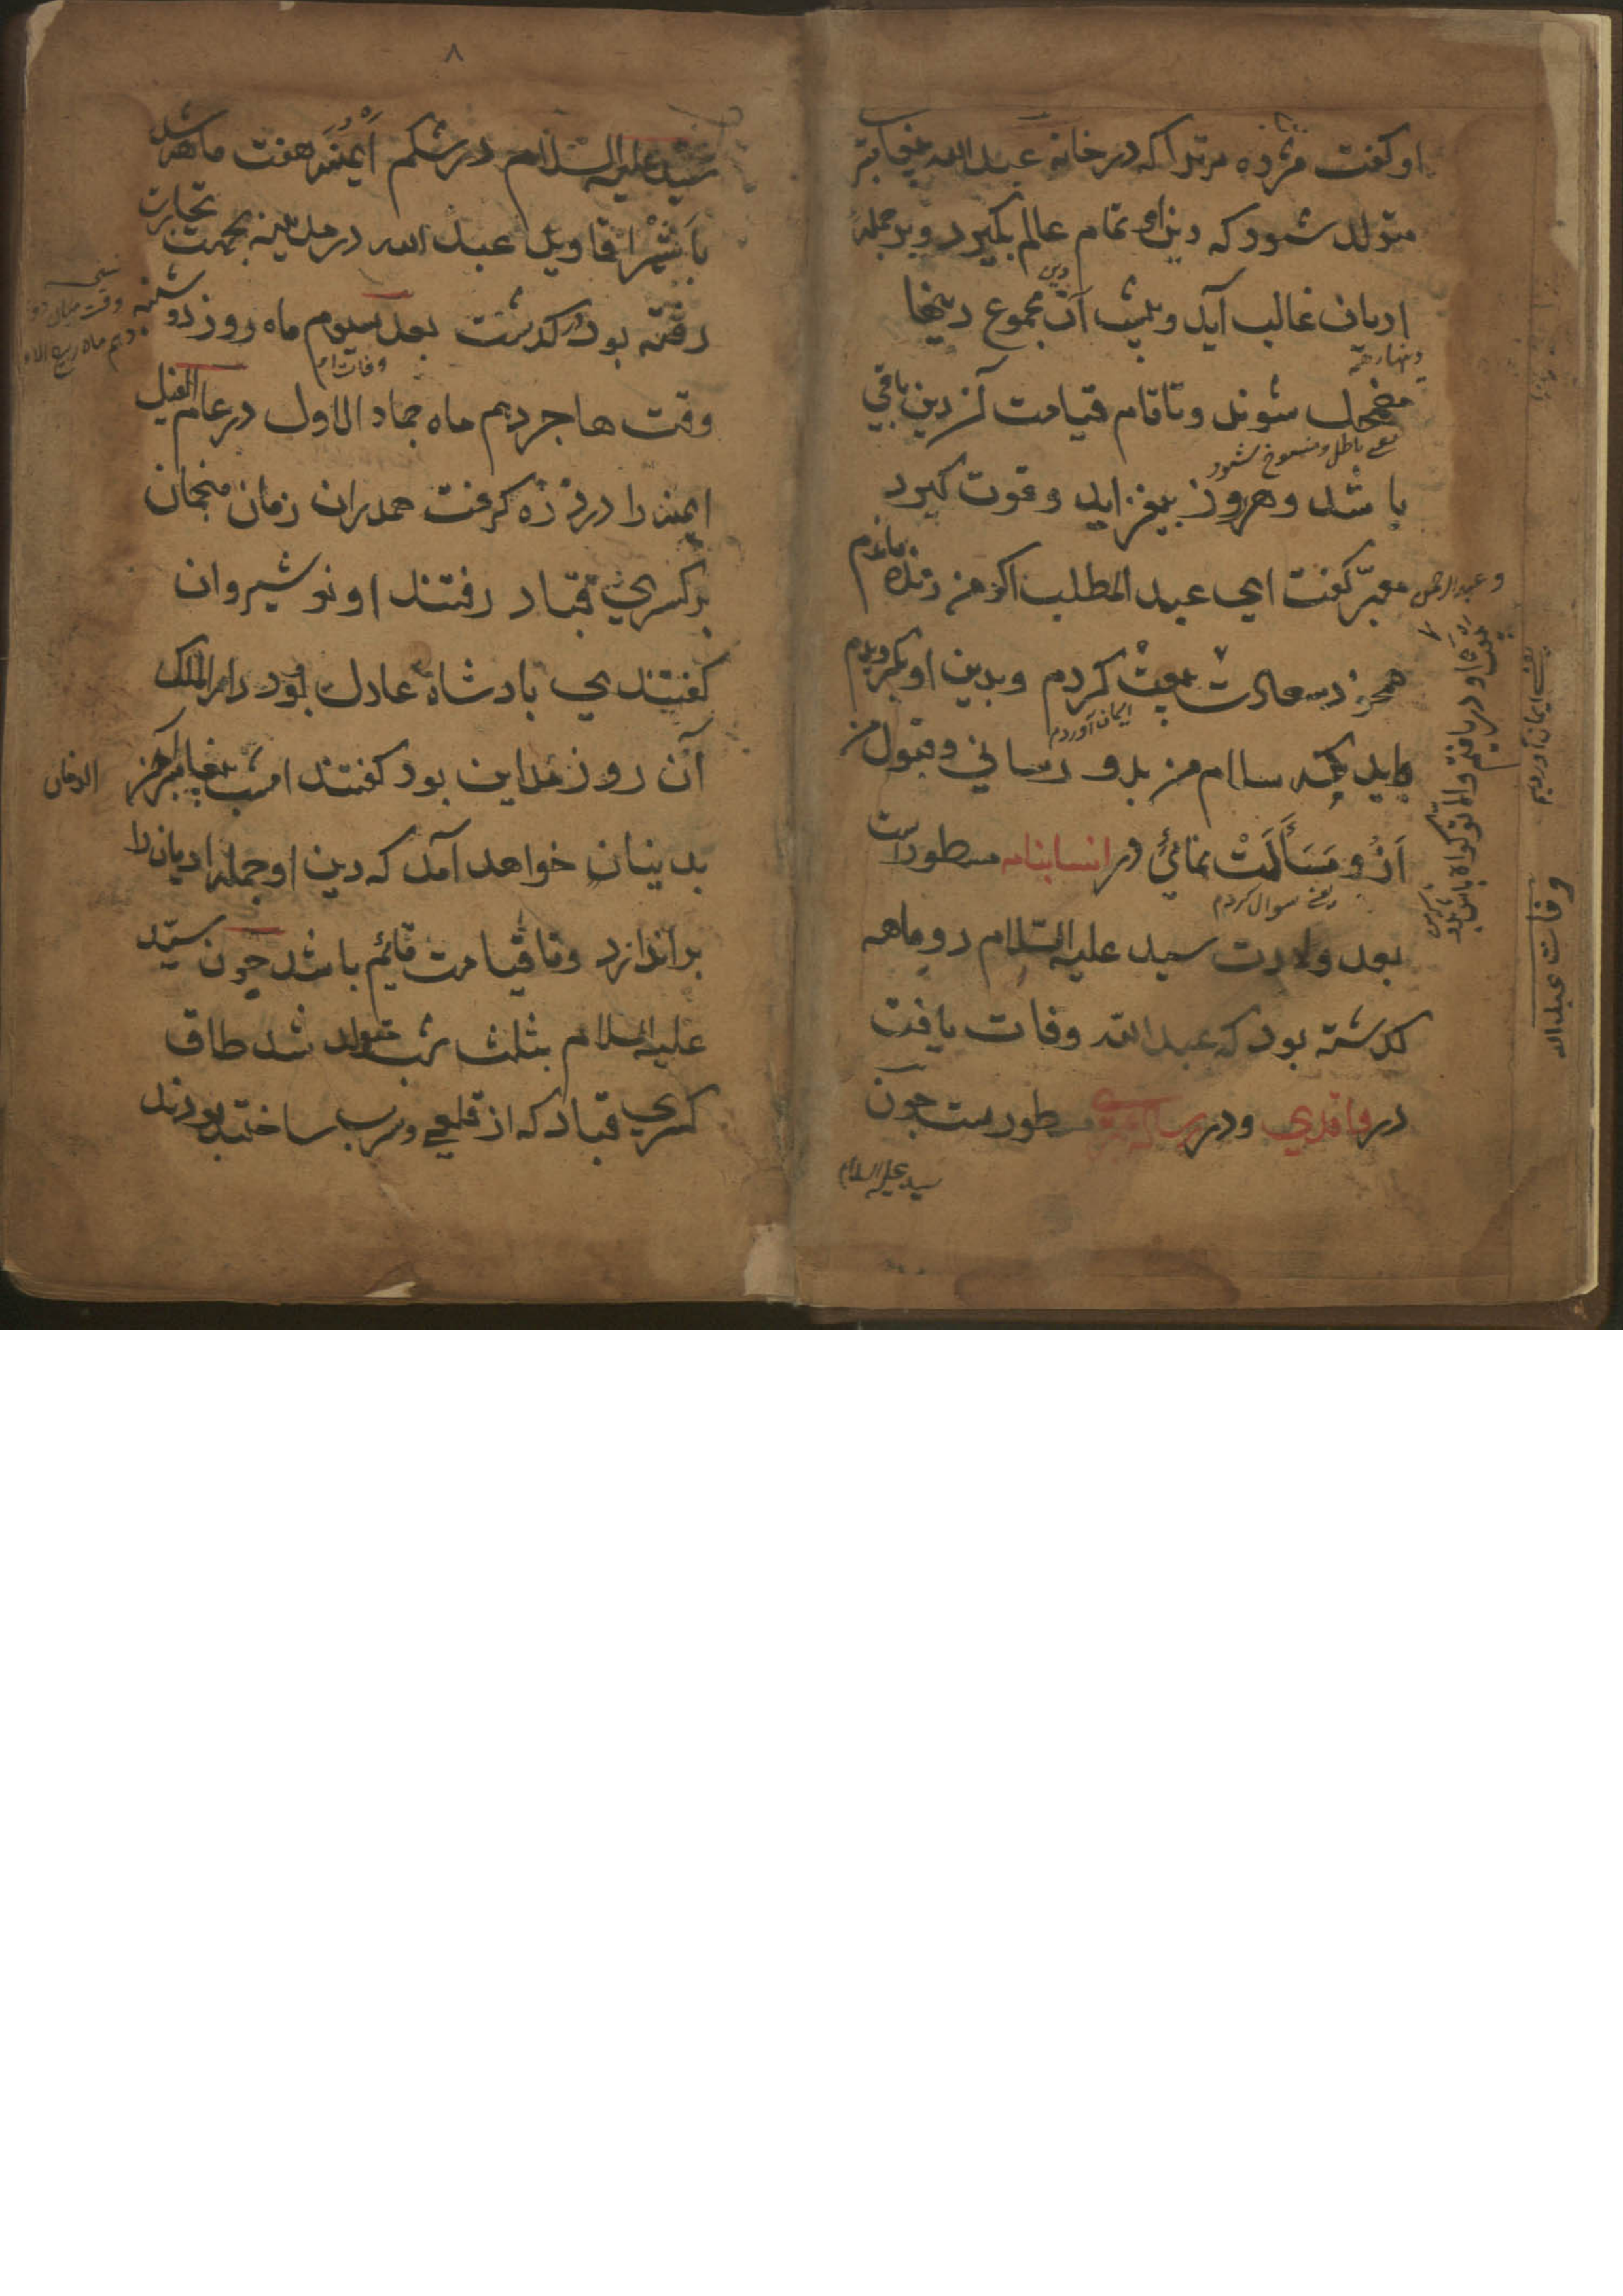 او کفت مژده مر ترا که در خانه عبد الله پیغامبر
متولد شود که دین او تمام عالم بکیرد و بر جمله
ادیان غالب آید و پیش آن مجموع دینها
دین
مضمحل شوند و تا قام قیامت آن دین باقی
یعنے باطل و منسوخ شود
باشد و هر روز بیفزاید و قوت کیرد
معبّر کفت ای عبد المطلب اکر من زنده مانم
بیعت کردم و بدین او بکرویدم
ایمان آوردم
سلام من بدو رسانی و قبول من
ازو مَسَألَتْ نمائی در انسابنامه مسطور است
یعنے سوال کردم
بعد ولادت سید علیه السّلام دو ماهه
کدشته بود که عبد الله وفات یافت
در واقدی و در مسطور ست چون
سید علیه السلام
وفات عبد الله
یعنے ایمان آوردیم
۸
سَیّد علیه السلام در شکم آیمنَه هفت ماهه شد
عبد الله در مدینه بجهت تجارت
رفته بود کدشت بعد سیوم ماه روز دوشنبه
وفات
وقت ها جردهم ماه جماد الاول در عام الفیل
ایمنه را درد زه کرفت همدران زمان منجمان
بر کسری قباد رفتند او نوشیروان
کفتندی بادشاه عادل بود دار الملک
آن روز مداین بود کفتند امشب پیغامبر آخر
الزمان
بدینان خواهد آمد که دین او جمله ادیان را
براندازد و تا قیامت قائم باشد چون سیّد
علیه السلام بثلث شب متولد شد طاق
کسری قباد که از قلعی و سرب ساخته بودند